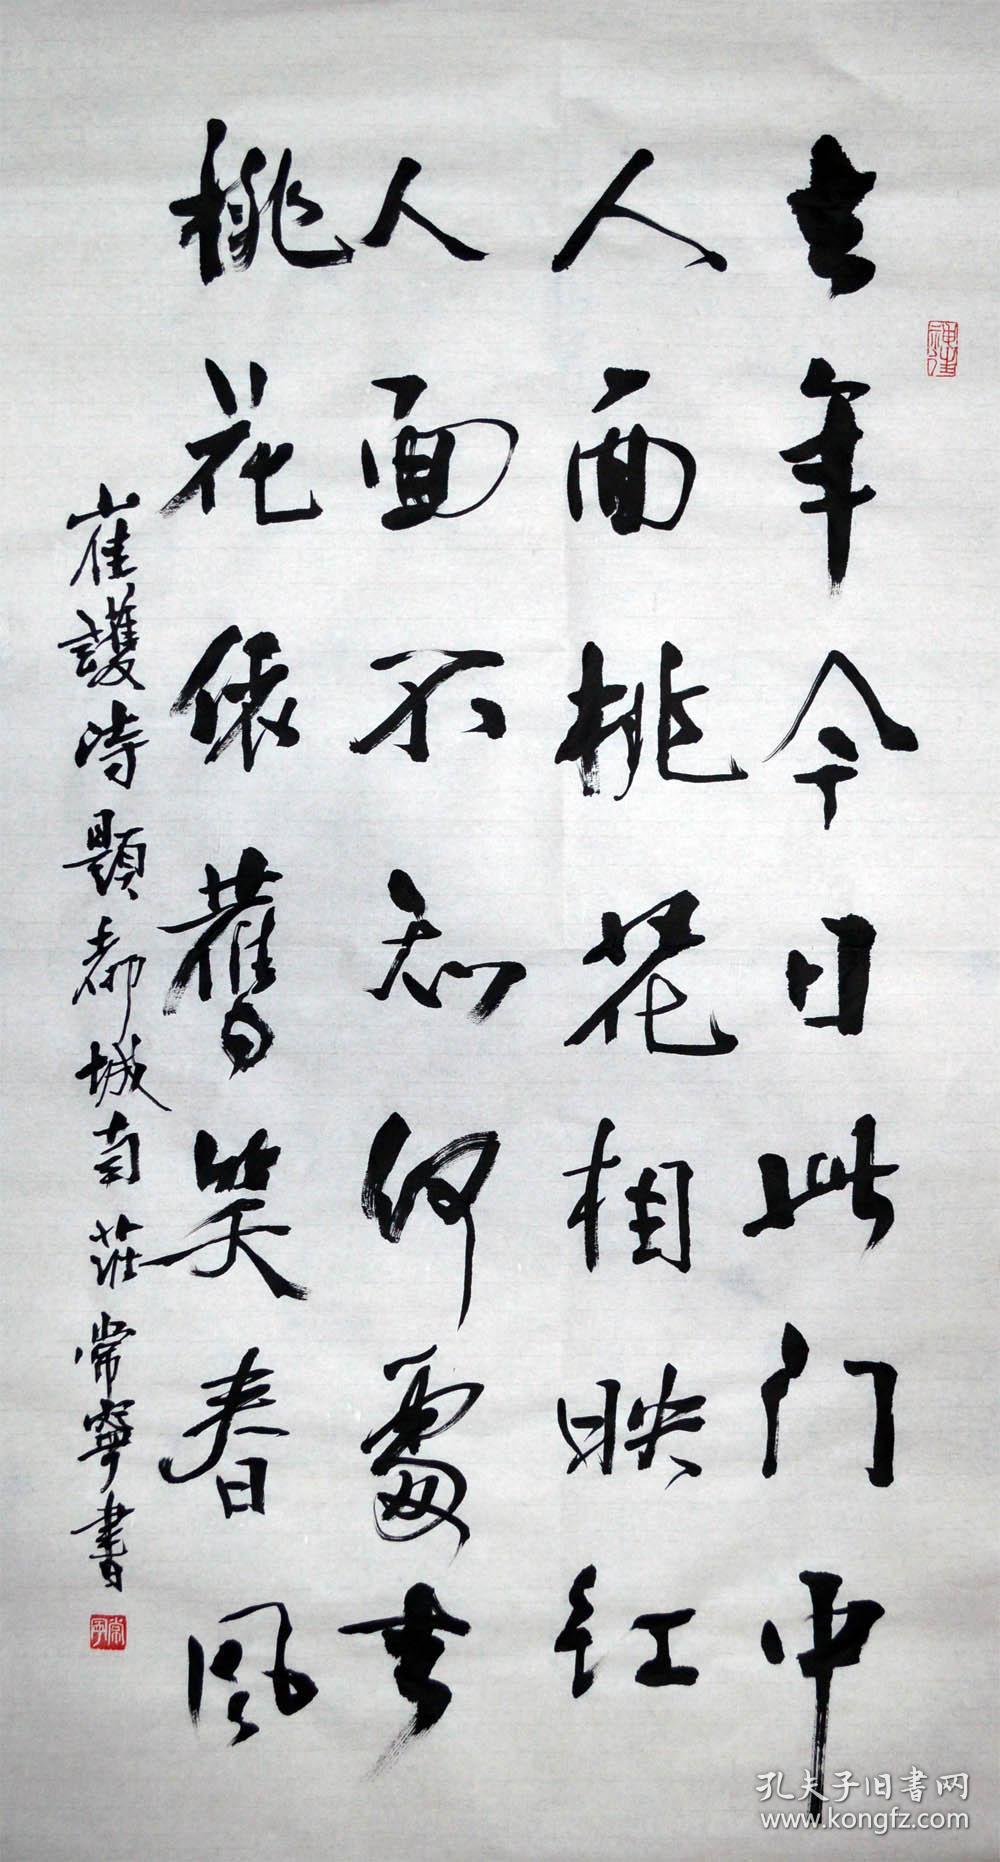 去年今日此门中
人面桃花相映红
人面不知何處去
桃花依舊笑春风
崔護诗题都城南莊常寧書
孔夫子旧书网
www.kongfz.com